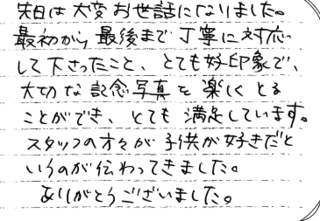 先日は大変お世話になりました。
最初から最後まで丁寧に対応
して下さったこと、とても好印象で、
大切な記念写真を楽しくとる
ことができ、とても満足しています。
スタッフの方々が子供が好きだと
いうのが伝わってきました。
ありがとうございました。